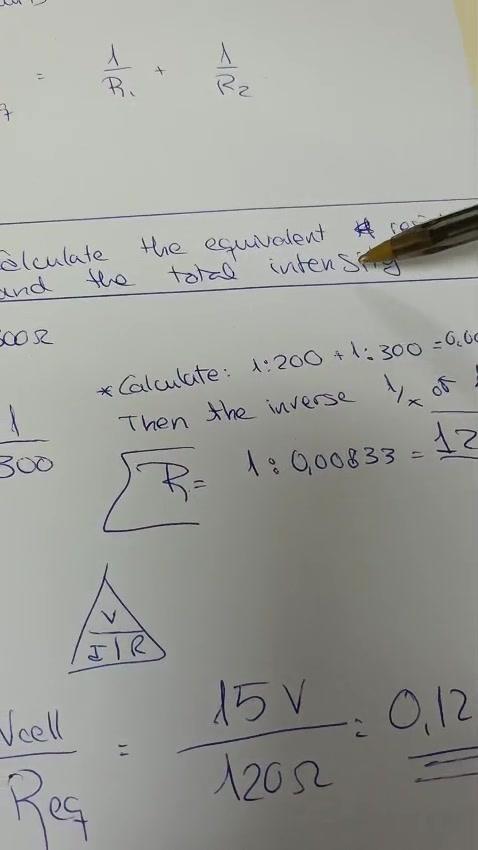 = 1/R₁ + 1/R₂
Calculate the equivalent
and the total intensity
300Ω
* Calculate: 1:200 + 1:300 = 0,00
Then the inverse 1/x of
1/300
R = 1 : 0,00833 = 12
V
I | R
Vcell/Req = 15 V/120Ω = 0,12